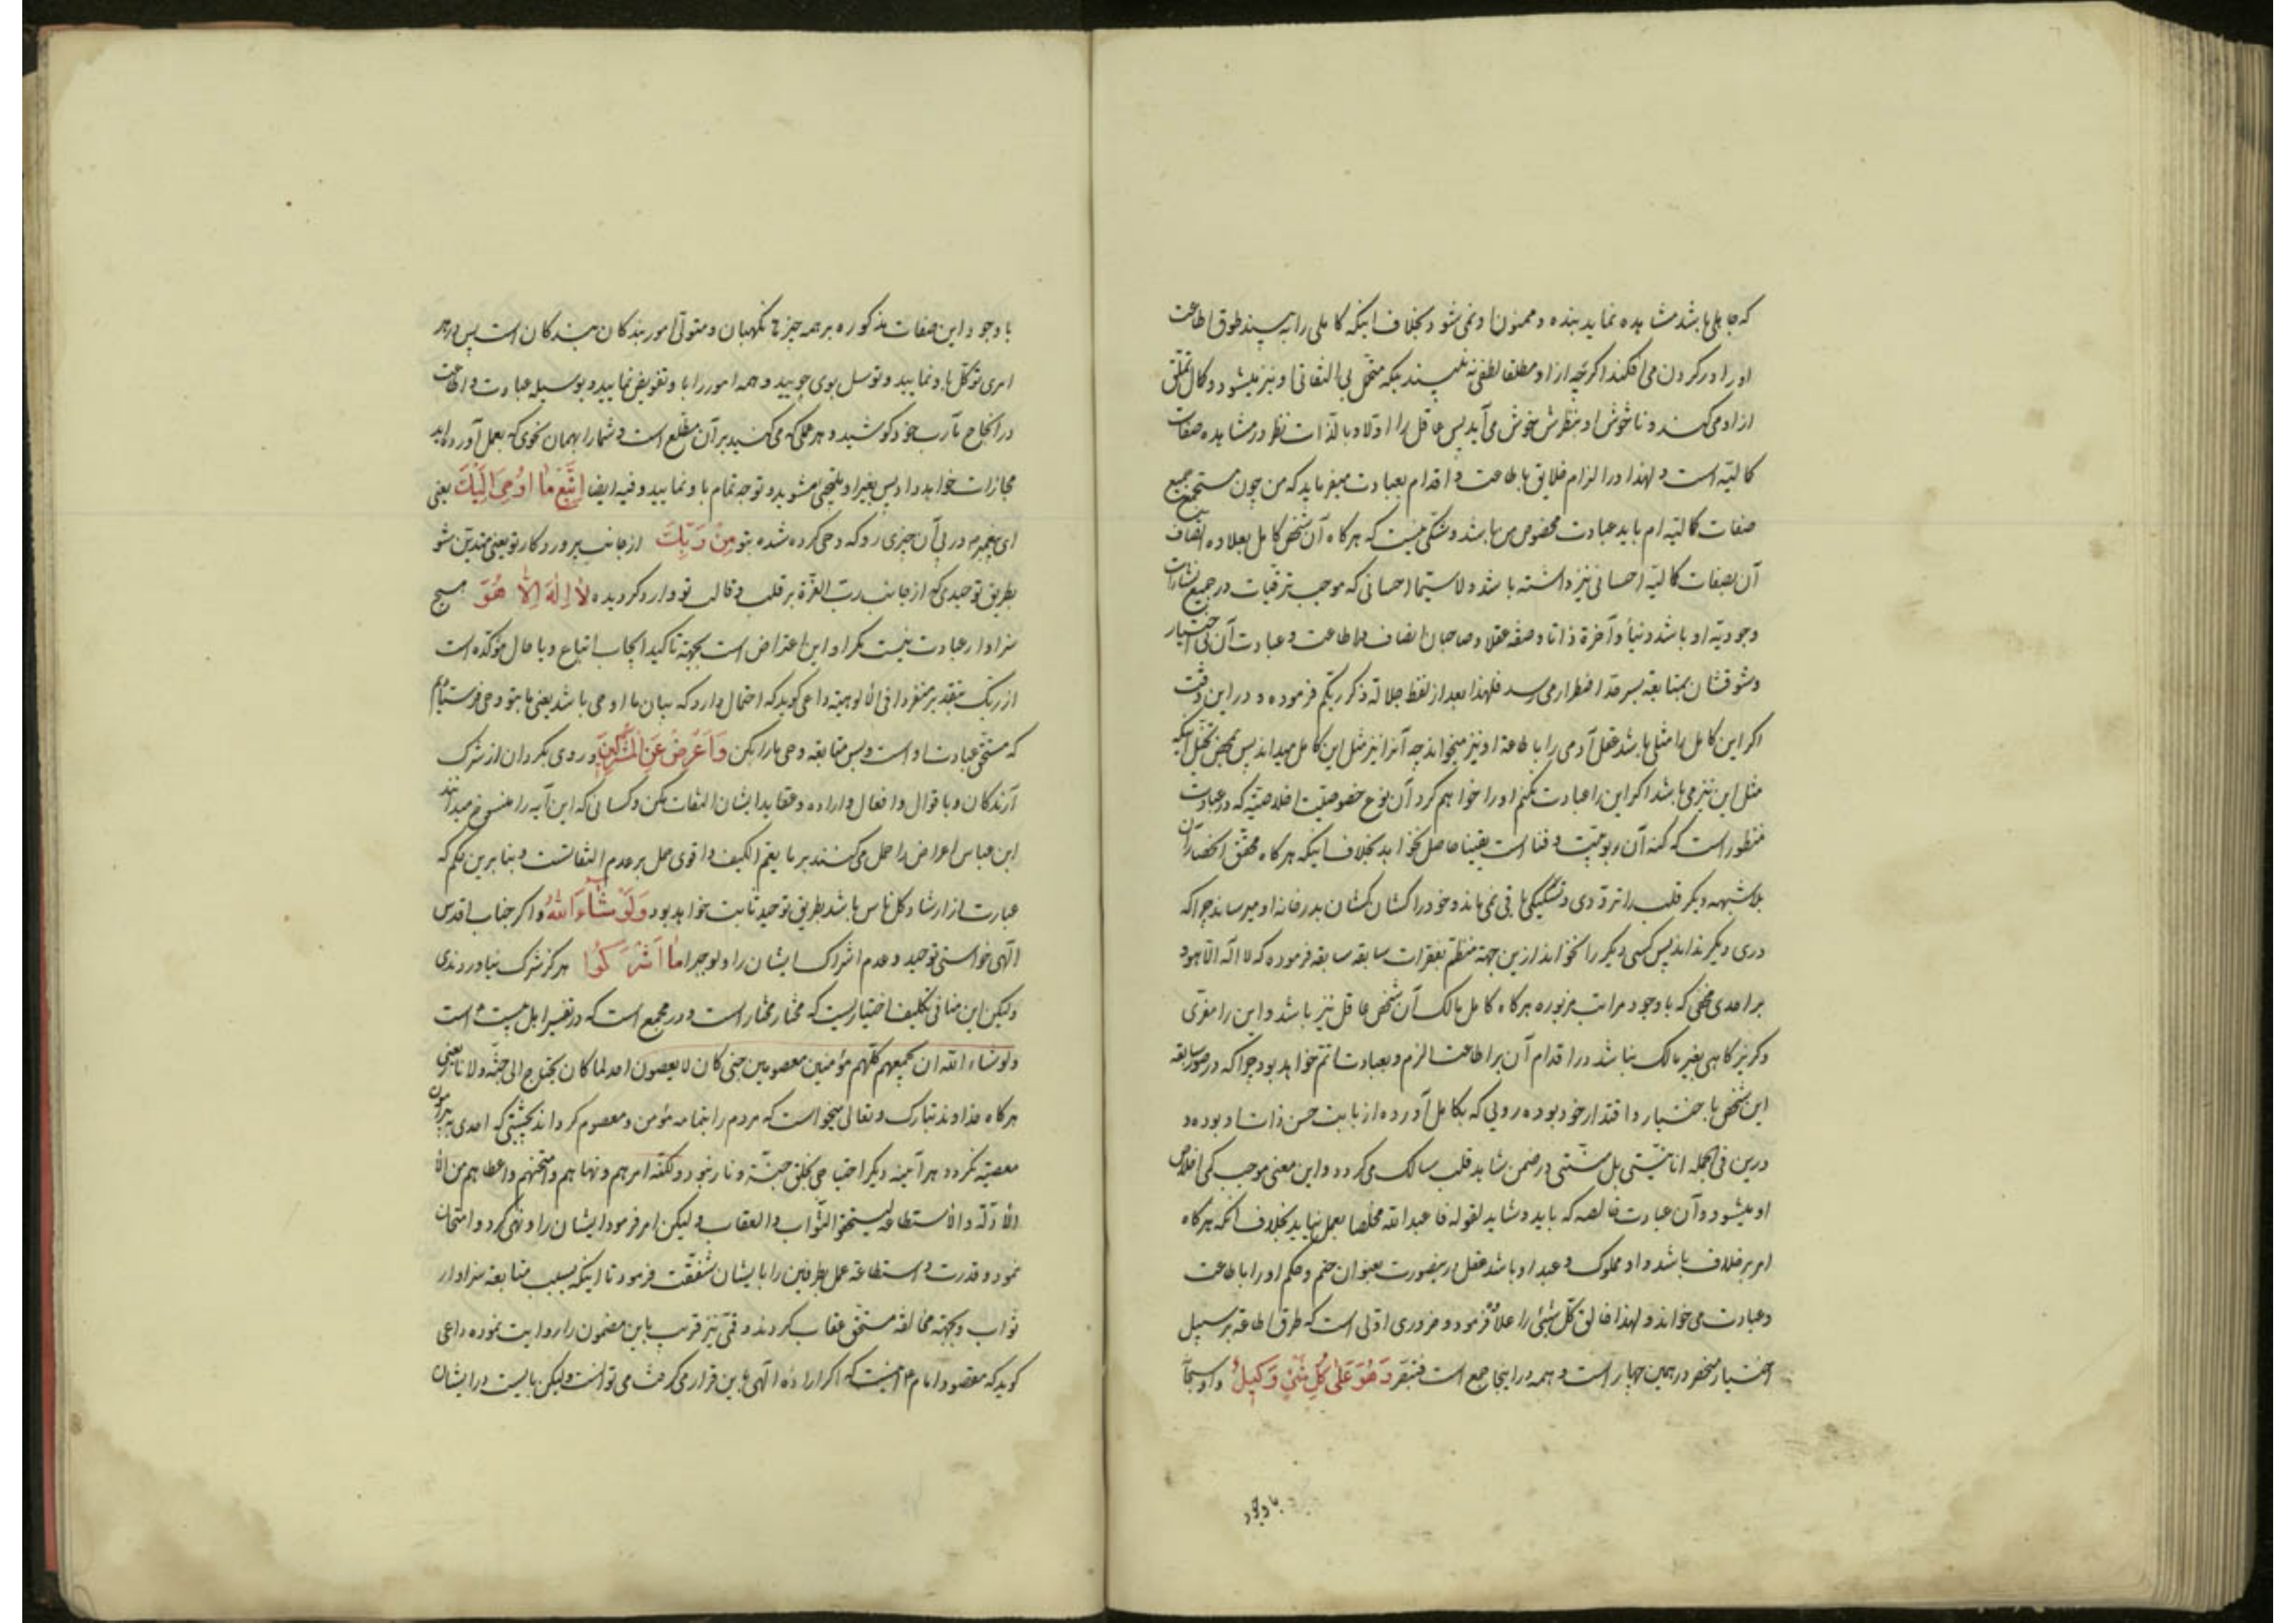 که جا بلی باشد مشاهده نماید بنده و ممنون او نمی شود بخلاف اینکه کاملی را به بیند طوق اطاعت
او را در گردن می افکند اگر چه از او مطلقا لطفی نه بیند بلکه متحمل بی التفاتی او نیز میشود و کمال تملق
از او می کند و ناخوش او بنظرش خوش می آید پس عاقل را اولا و بالذات نظر در مشاهده صفات
کمالیه است و لهذا در الزام خلایق باطاعت و اقدام بعبادت میفرماید که من چون مستجمع جمیع
صفات کمالیه ام باید عبادت مخصوص من باشد و شکی نیست که هر کاه آن شخص کامل بعلاوه اتصاف
آن بصفات کمالیه احسانی نیز داشته باشد ولا سیما احسانی که موجب ترقیات در جمیع نشآت
وجودیه او باشد دنیا و آخرة ذاتا و صفة عقلا و صاحبان انصاف را اطاعت و عبادت آن بی اختیار
و شوقشان بمتابعه بسر حد اضطرار می رسد فلهذا بعد از لفظ جلاله ذکر ربکم فرموده و در این وقت
اگر این کامل را مثلی باشد عقل آدمی را باطاعة او نیز میخواند چه آنرا نیز مثل این کامل میداند پس بمحض تخیل اینکه
مثل این نیز می باشد اگر این را عبادت نکنم او را خواهم کرد آن نوع خصوصیت اخلاصیه که در عبادت
منظور است که کنه آن ربوبیت و فنا است یقینا حاصل نخواهد بخلاف اینکه هر کاه محقق انحصار آن
بلا شبهه دیگر قلب را تردّدی و تشکیکی باقی نمی ماند و خود را کشان کشان بدر خانه او میرساند چرا که
دری دیگر نداند پس کسی دیگر را نخواند از این جهة منظم بفقرات سابقه سابقه فرموده که لا اله الا هو و
بر احدی مخفی که با وجود مراتب مزبوره هر کاه کامل مالک آن شخص عاقل نیز باشد و این را مفری
و گریز کاهی بغیر مالک نباشد در اقدام آن بر اطاعت الزم و بعبادت اتم خواهد بود چرا که در صور سابقه
این شخص با اختیار و اقتدار خود بوده رویی که بکامل آورده از بابت حسن ذات او بوده و
درین فی الجمله انانیتی بل منیتی در ضمن شاهد قلب سالک می کردد و این معنی موجب کمی اخلاص
او میشود و آن عبادت خالصه که باید و شاید لقوله فاعبد الله مخلصا بعمل نیاید بخلاف آنکه هر کاه
امر بر خلاف باشد و او مملوک و عبد او باشد عقل در اینصورت بعنوان حتم و حکم او را باطاعت
و عبادت می خواند و لهذا خالق کل شیئ را علاوه فرمود و ضروری اولی است که طرق اطاعة بر سبیل
اختیار منحصر در همین چهار است و همه در اینجا جمع است فتبصر وَهُوَ عَلىٰ كُلِّ شَيْءٍ وَكِيلٌ و او سبحانه
با وجود
با وجود این صفات مذکوره بر همه چیز ها نگهبان و متولی امور بندکان است پس در هر
امری توکل باو نمایید و توسل بوی جویید و همه امور را با و تفویض نمایید و بوسیله عبادت و اطاعت
در انجاح مآرب خود کوشید و هر عملی که می کنید بر آن مطلع است و شما را بهمان نحوی که بعمل آورده اید
مجازات خواهد داد پس بغیر او ملتجی مشوید و توجه تمام با و نمایید و فیه ایضا اِتَّبِعْ مٰا اُوحِيَ اِلَيْكَ یعنی
ای پیغمبر در پی آن چیزی رو که وحی کرده شده بتو مِنْ رَبِّكَ از جانب پروردکار تو یعنی متدین شو
بطریق توحیدی که از جانب رب العزة بر قلب و قالب تو وارد کردیده لٰا اِلٰهَ اِلّٰا هُوَ هیچ
سزاوار عبادت نیست مکر او این اعتراض است بجهة تاکید ایجاب اتباع و یا حال مؤکده است
از ربک بتقدیر منفردا فی الالوهیة داعی کوید که احتمال دارد که بیان ما اوحی باشد یعنی ما بتو وحی فرستادیم
که مستحق عبادت او است و بس متابعه وحی ما را بکن وَاَعْرِضْ عَنِ الْمُشْرِكِينَ و روی بکردان از شرک
آرندکان و با قوال و افعال و اراده و عقاید ایشان التفات مکن و کسانی که این آیه را منسوخ میدانند
ابن عباس اعراض را حمل می کنند بر ما یعم الکیف و اقوی حمل بر عدم التفاتست و بنا برین حکم که
عبارت از ارشاد کل ناس باشد بطریق توحید ثابت خواهد بود وَلَوْ شٰاءَ اللّٰهُ و اگر جناب اقدس
الهی خواستی توحید و عدم اشراک ایشان را و لو جبرا مٰا اَشْرَكُوا هر کز شرک نیاوردندی
ولیکن این منافی تکلیف اختیاریست که مختار مختار است و در مجمع است که در تفسیر اهل بیت ع است
ولو شاء الله ان یجعلهم کلهم مؤمنین معصومین حتی کان لا یعصون احد لما کان یحتاج الی جنة ولا نار یعنی
هر کاه خداوند تبارک و تعالی میخواست که مردم را بتمامه مؤمن و معصوم کرداند بحیثیتی که احدی پیرامون
معصیة نکردد هر آینه دیگر احتیاجی بخلق جنة و نار نبود و لکنه امرهم و نهاهم و امتحنهم و اعطاهم من الآ
الآدلة و الاستطاعة لیستحقوا الثواب و العقاب ولیکن امر فرمود ایشان را و نهی کرد و امتحان
نمود و قدرت و استطاعة عمل بطرفین را با یشان شفقت فرمود تا اینکه بسبب متابعة سزاوار
ثواب و بجهة مخالفة مستحق عقاب کردند و قمی نیز قریب باین مضمون را روایت نموده داعی
کوید که مقصود امام ع اینست که اگر اراده الهی باین قرار می کرفت می توانست ولیکن بایست در ایشان